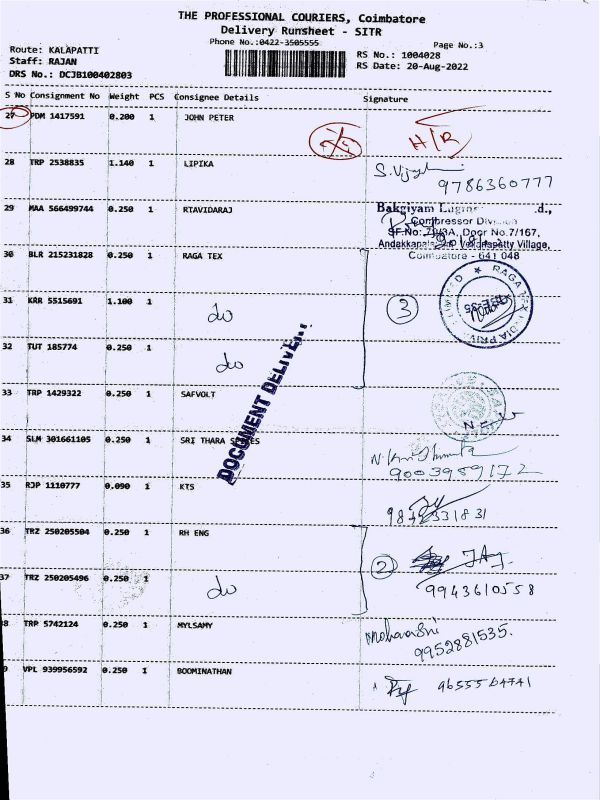 THE PROFESSIONAL COURIERS, Coimbatore
Delivery Runsheet - SITR
Phone No.:0422-3505555
Page No.:3
Route: KALAPATTI
RS No.: 1004028
Staff: RAJAN
RS Date: 20-Aug-2022
DRS No.: DCJB100402803
S No Consignment No Weight PCS Consignee Details Signature
27 PDM 1417591 0.200 1 JOHN PETER
H/R
28 TRP 2538835 1.140 1 LIPIKA
9786360777
29 MAA 566499744 0.250 1 RTAVIDARAJ
Bakgiyam
Compressor
Door No.7/167,
Village,
Coimbatore - 641 048
30 BLR 215231828 0.250 1 RAGA TEX
RAGA TEX INDIA PRIVATE LIMITED
31 KRR 5515691 1.100 1
do
3
32 TUT 185774 0.250 1
do
DOCUMENT
33 TRP 1429322 0.250 1 SAFVOLT
34 SLM 301661105 0.250 1 SRI THARA SPICES
9003989172
35 RJP 1110777 0.090 1 KTS
36 TRZ 250205504 0.250 1 RH ENG
2
37 TRZ 250205496 0.250 1
do
9943610558
38 TRP 5742124 0.250 1 MYLSAMY
9952881535.
9 VPL 939956592 0.250 1 BOOMINATHAN